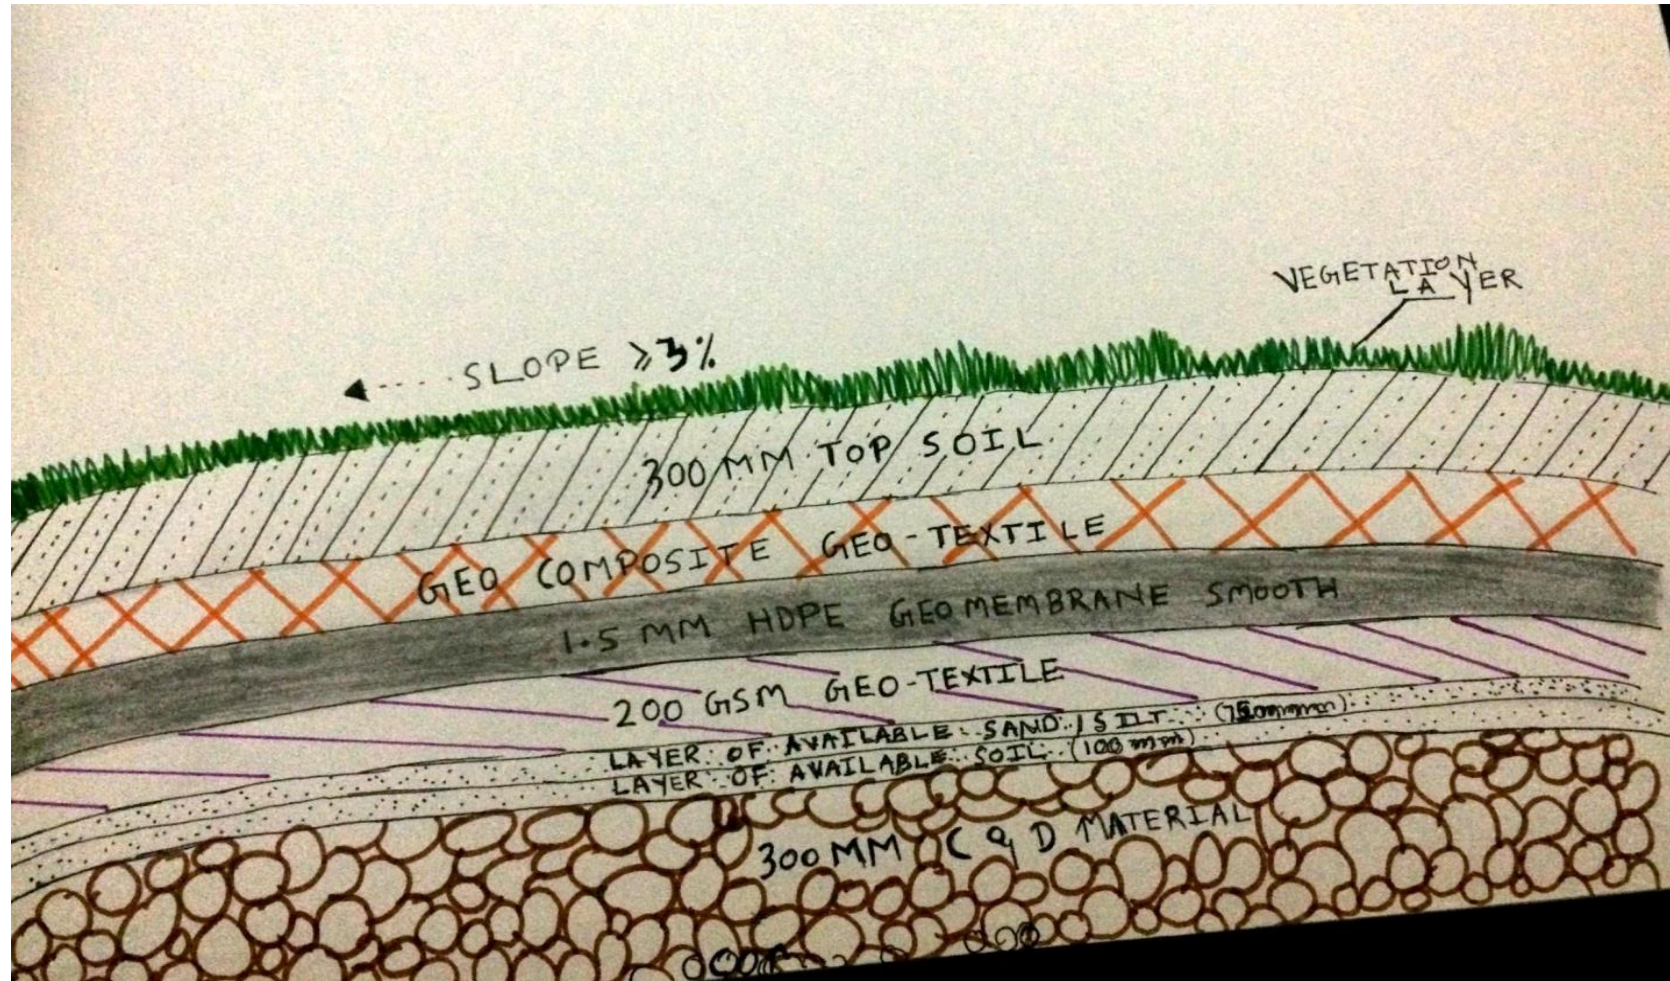 VEGETATION
LAYER
SLOPE ≥3%
300 MM TOP SOIL
GEO COMPOSITE GEO-TEXTILE
1.5 MM HDPE GEOMEMBRANE SMOOTH
200 GSM GEO-TEXTILE
LAYER OF AVAILABLE SAND/SILT
LAYER OF AVAILABLE SOIL (100 mm)
300 MM C & D MATERIAL